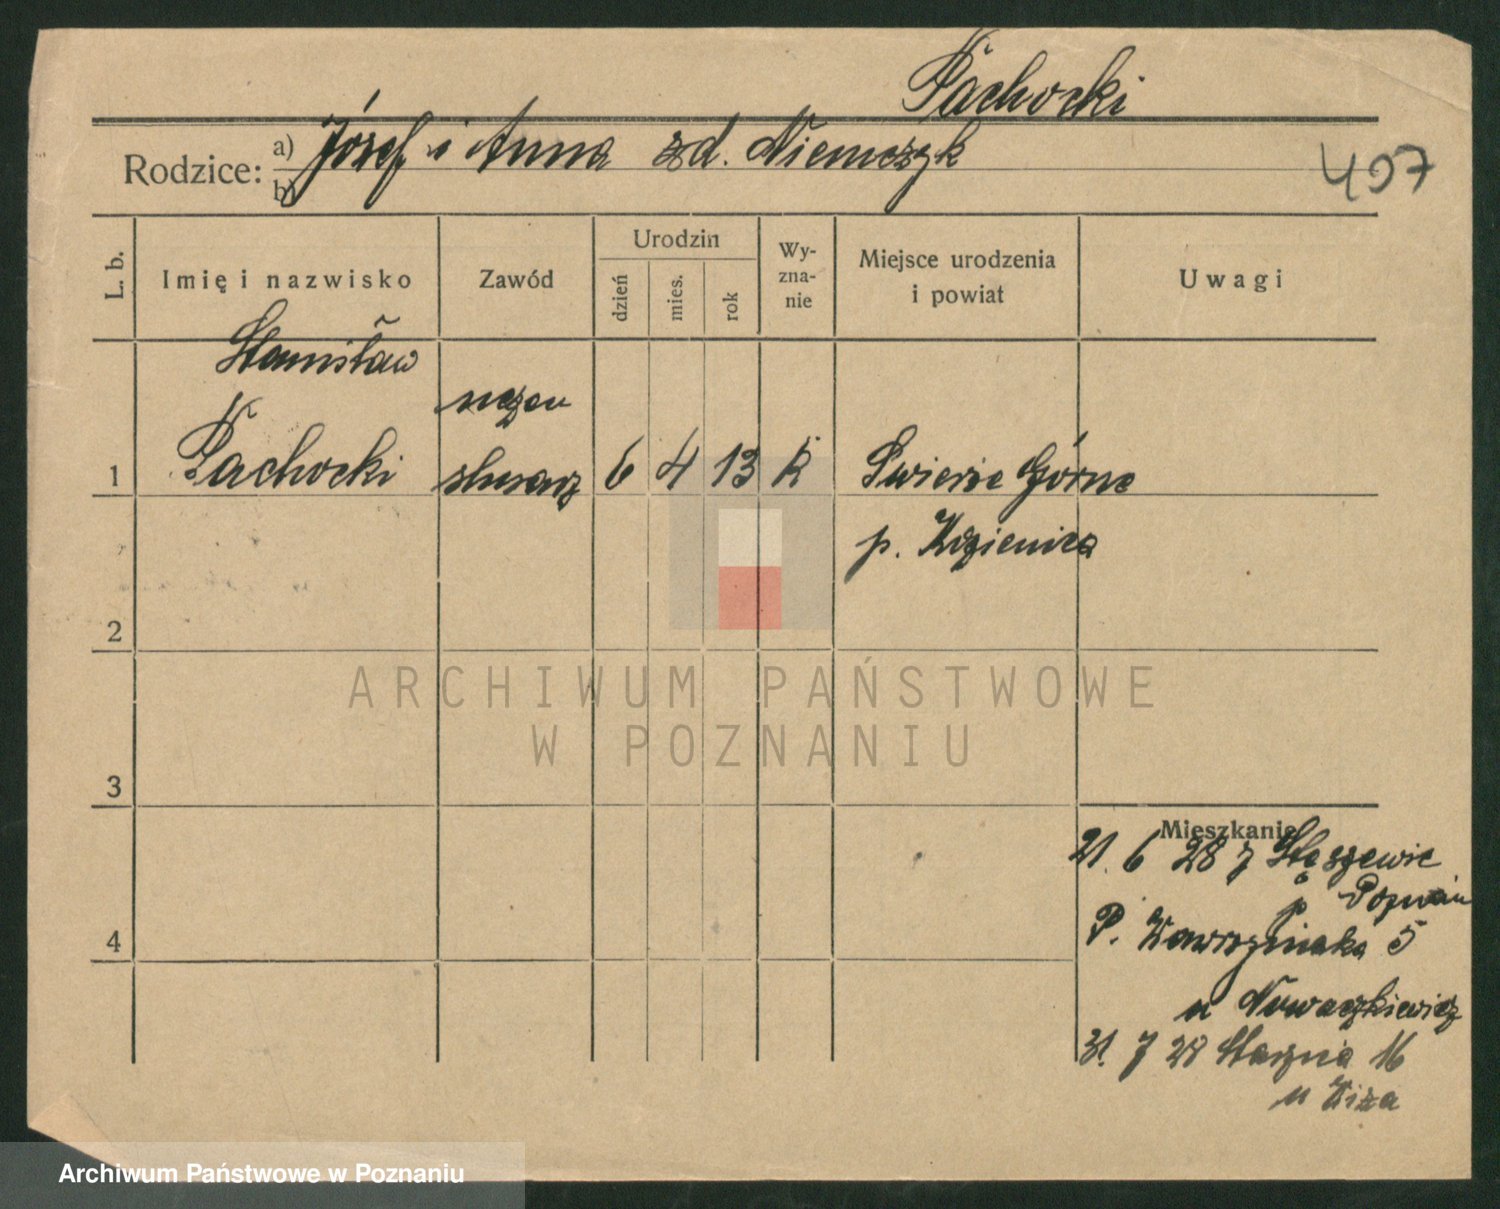 Pachocki
Rodzice: a) Józef i Anna zd. Niemczyk
b)
407
L. b.
Imię i nazwisko
Zawód
Urodzin
dzień
mies.
rok
Wy-
zna-
nie
Miejsce urodzenia
i powiat
Uwagi
Stanisław
uczeń
1 Pachocki ślusarz 6 4 13 R Świerże Górne
p. Kozienice
2
ARCHIWUM PAŃSTWOWE
W POZNANIU
3
Mieszkanie
21. 6 28 z Stęszewic
p Poznań
4
P. Wawrzyniaka 5
u Nowaczkiewicz
31. 7 28 Starzna 16
u
Archiwum Państwowe w Poznaniu